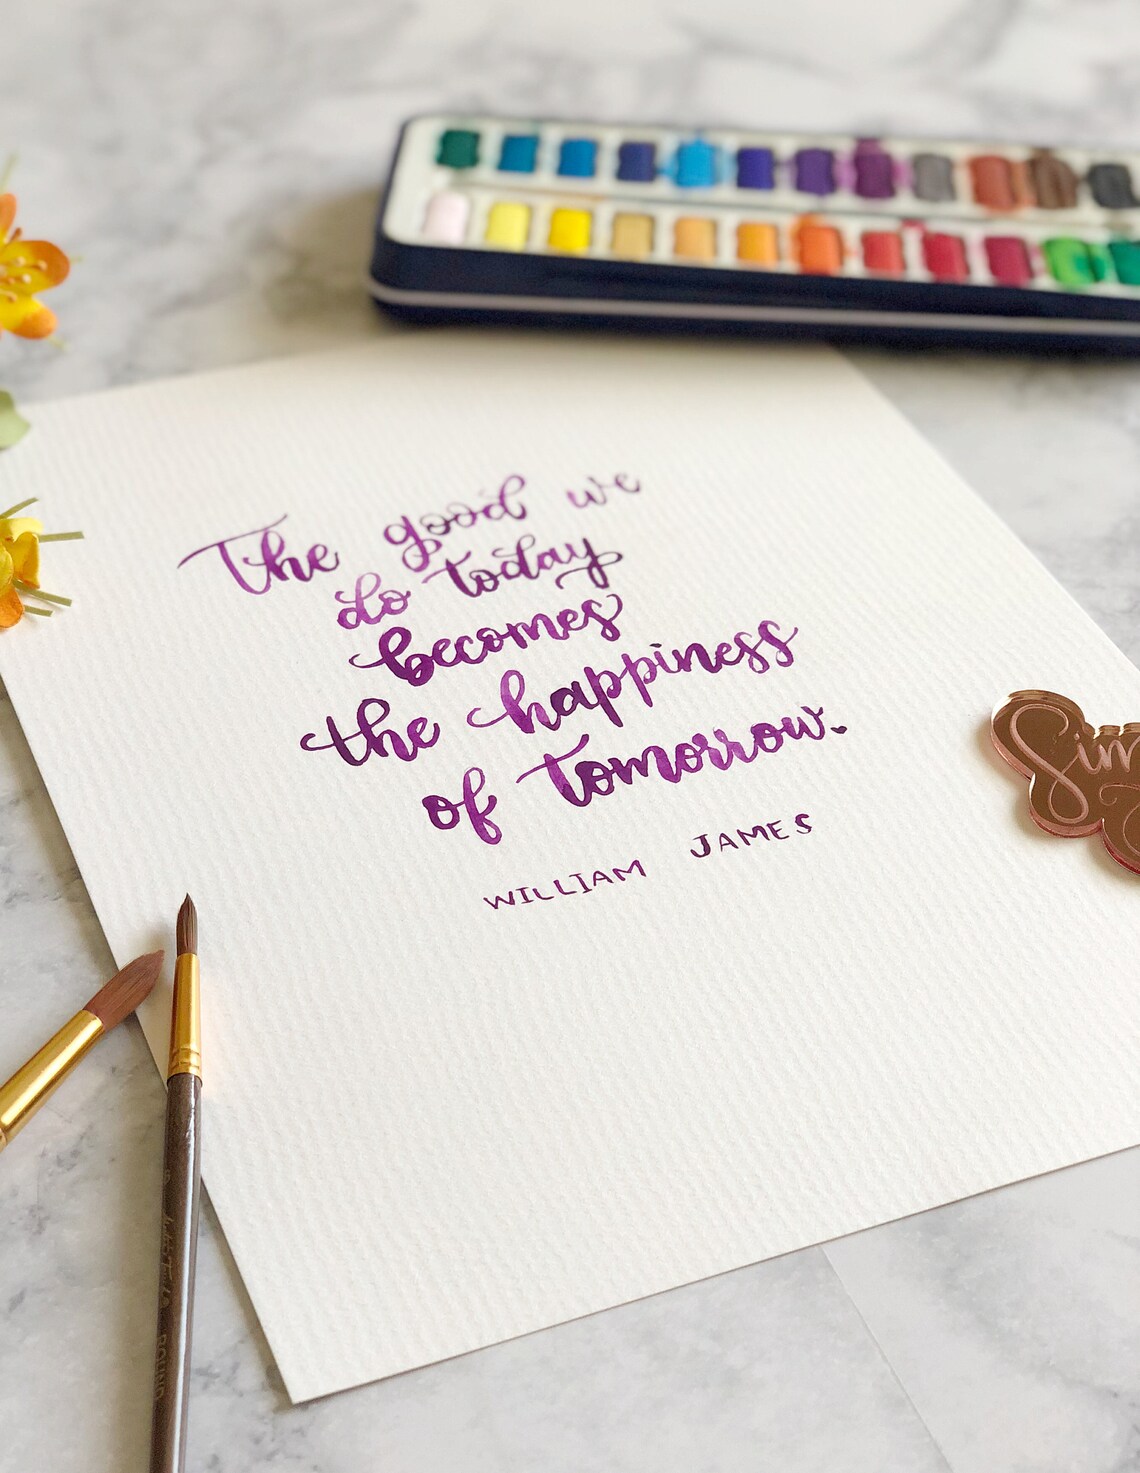 The good we
do today
becomes
the happiness
of tomorrow.
WILLIAM JAMES
ROUND